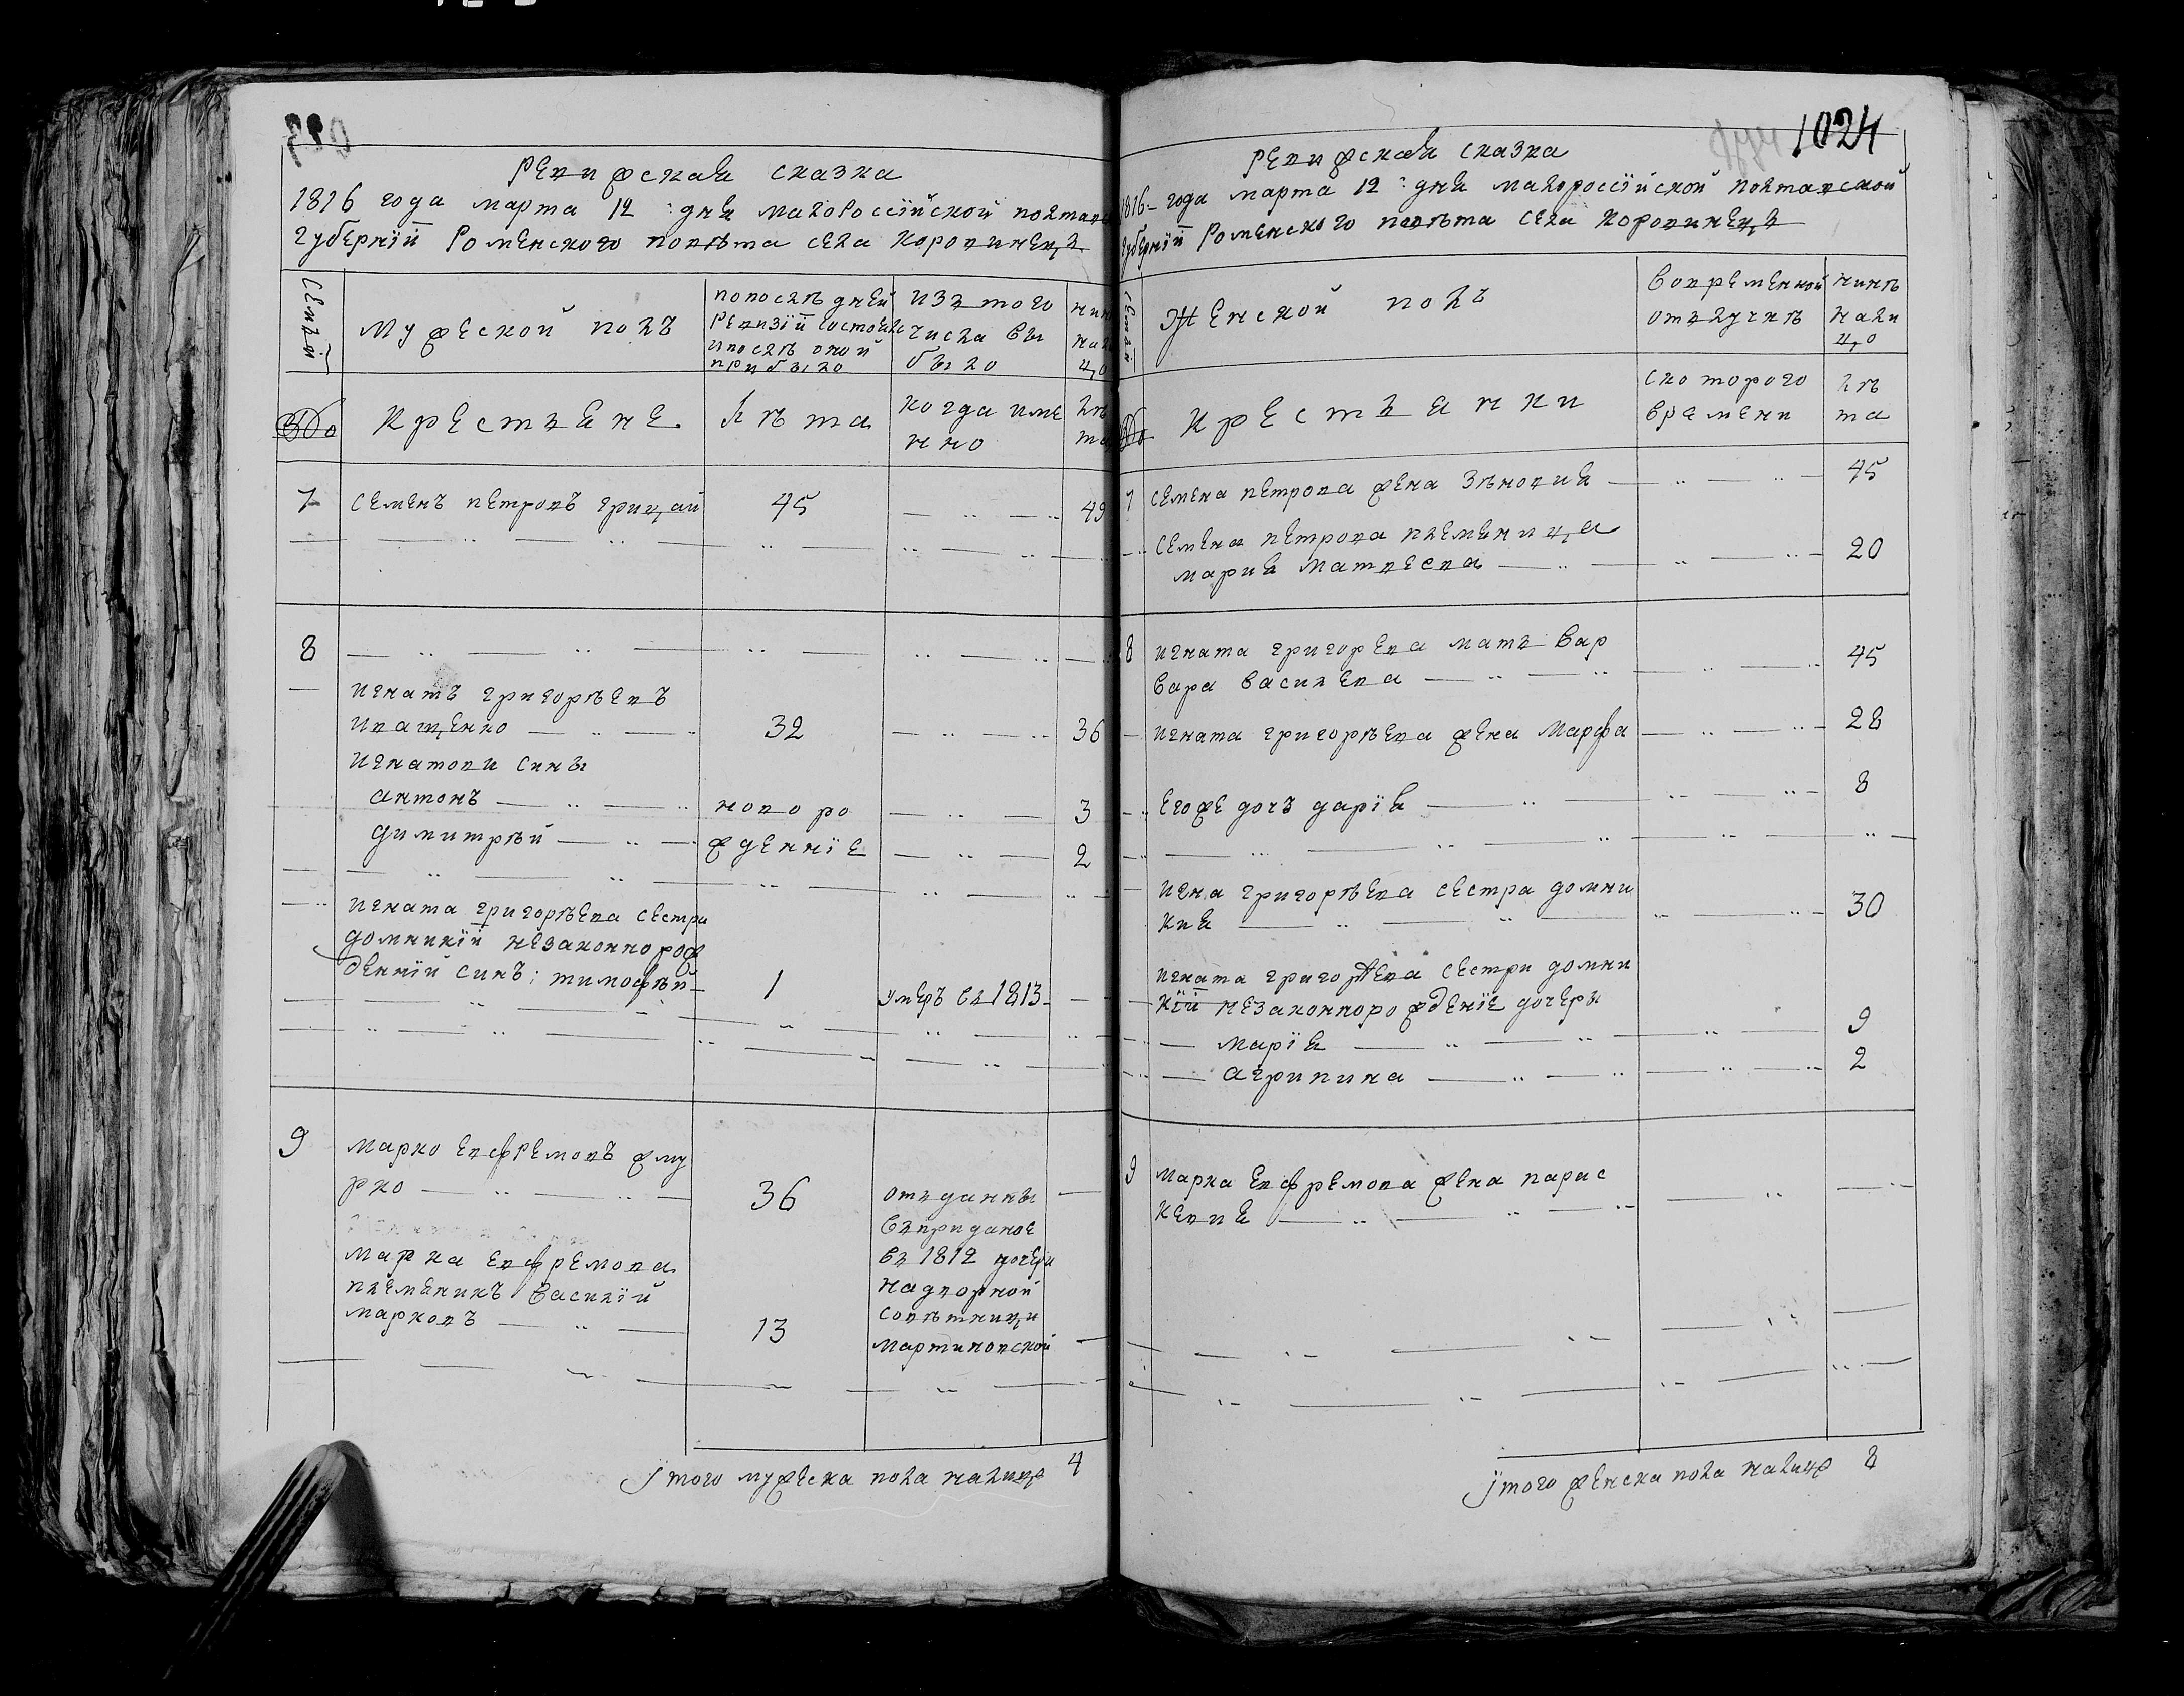 Ревижская сказка
1816 года марта 12: дня малороссійской полтавс
губерніи Роменского повѣта села Коровинецъ
Семьи
Мужеской полъ
попослѣ дней
Ревизіи состояло
и послѣ оной
прибыло
изъ того
числа вы
было
нин
нал
цо
№
Крестьяне
Лѣта
когда име
нно
лѣ
та
7
Семенъ Петровъ Грицай
45
49
8
Игнатъ Григорѣевъ
Иващенко
32
36
Игнатови сины
Антонъ
новоро
3
Димитрѣй
жденніе
2
Игната Григорѣева сестри
Домникіи незаконнорож
денній синъ: Тимофѣй
1
умеръ въ 1813
9
Марко Евфремовъ Жму
рко
36
отъданны
въприданое
въ 1812 дочери
надворной
совѣтници
Мартиновской
Марка Евфремова
племеникъ Василій
Марковъ
13
Итого мужеска пола налицо 4
1024
Ревижская сказка
1816 года марта 12: дня малороссійской полтавской
губерніи Роменского повѣта села Коровинецъ
Семьи
Женской полъ
вовременной
отълучкѣ
нинѣ
нали
цо
№
Крестъянки
скоторого
времени
лѣ
та
7
Семена Петрова жена Зѣновия
45
Семена Петрова племеница
Мария Матвеева
20
8
Игната Григорева мать Вар
вара Василева
45
Игната Григорѣева жена Марфа
28
Егоже дочъ Дарія
8
Игна Григорѣева сестра Домни
кия
30
Игната Григорѣева сестри Домни
кіи незаконнорожденіе дочеры
Марія
9
Агрипина
2
9
Марка Евфремова жена Парас
кевия
Итого женска пола налицо 8